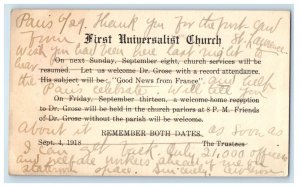 Thank you for the first card
From
First Universalist Church
St. Lawrence.
Wish you had been here last night to
On next Sunday, September eight, church services will be
hear
resumed. Let us welcome Dr. Grose with a record attendance.
His subject will be: "Good News from France".
and help
the Paris celebrate. Will tell you
On Friday, September thirteen, a welcome-home reception
to Dr. Grose will be held in the church parlors at 8 P.M. Friends
of Dr. Grose without the parish will be welcome.
about it as soon as
REMEMBER BOTH DATES.
Sept. 4, 1918 The Trustees
I can get back. officers
and ahead of